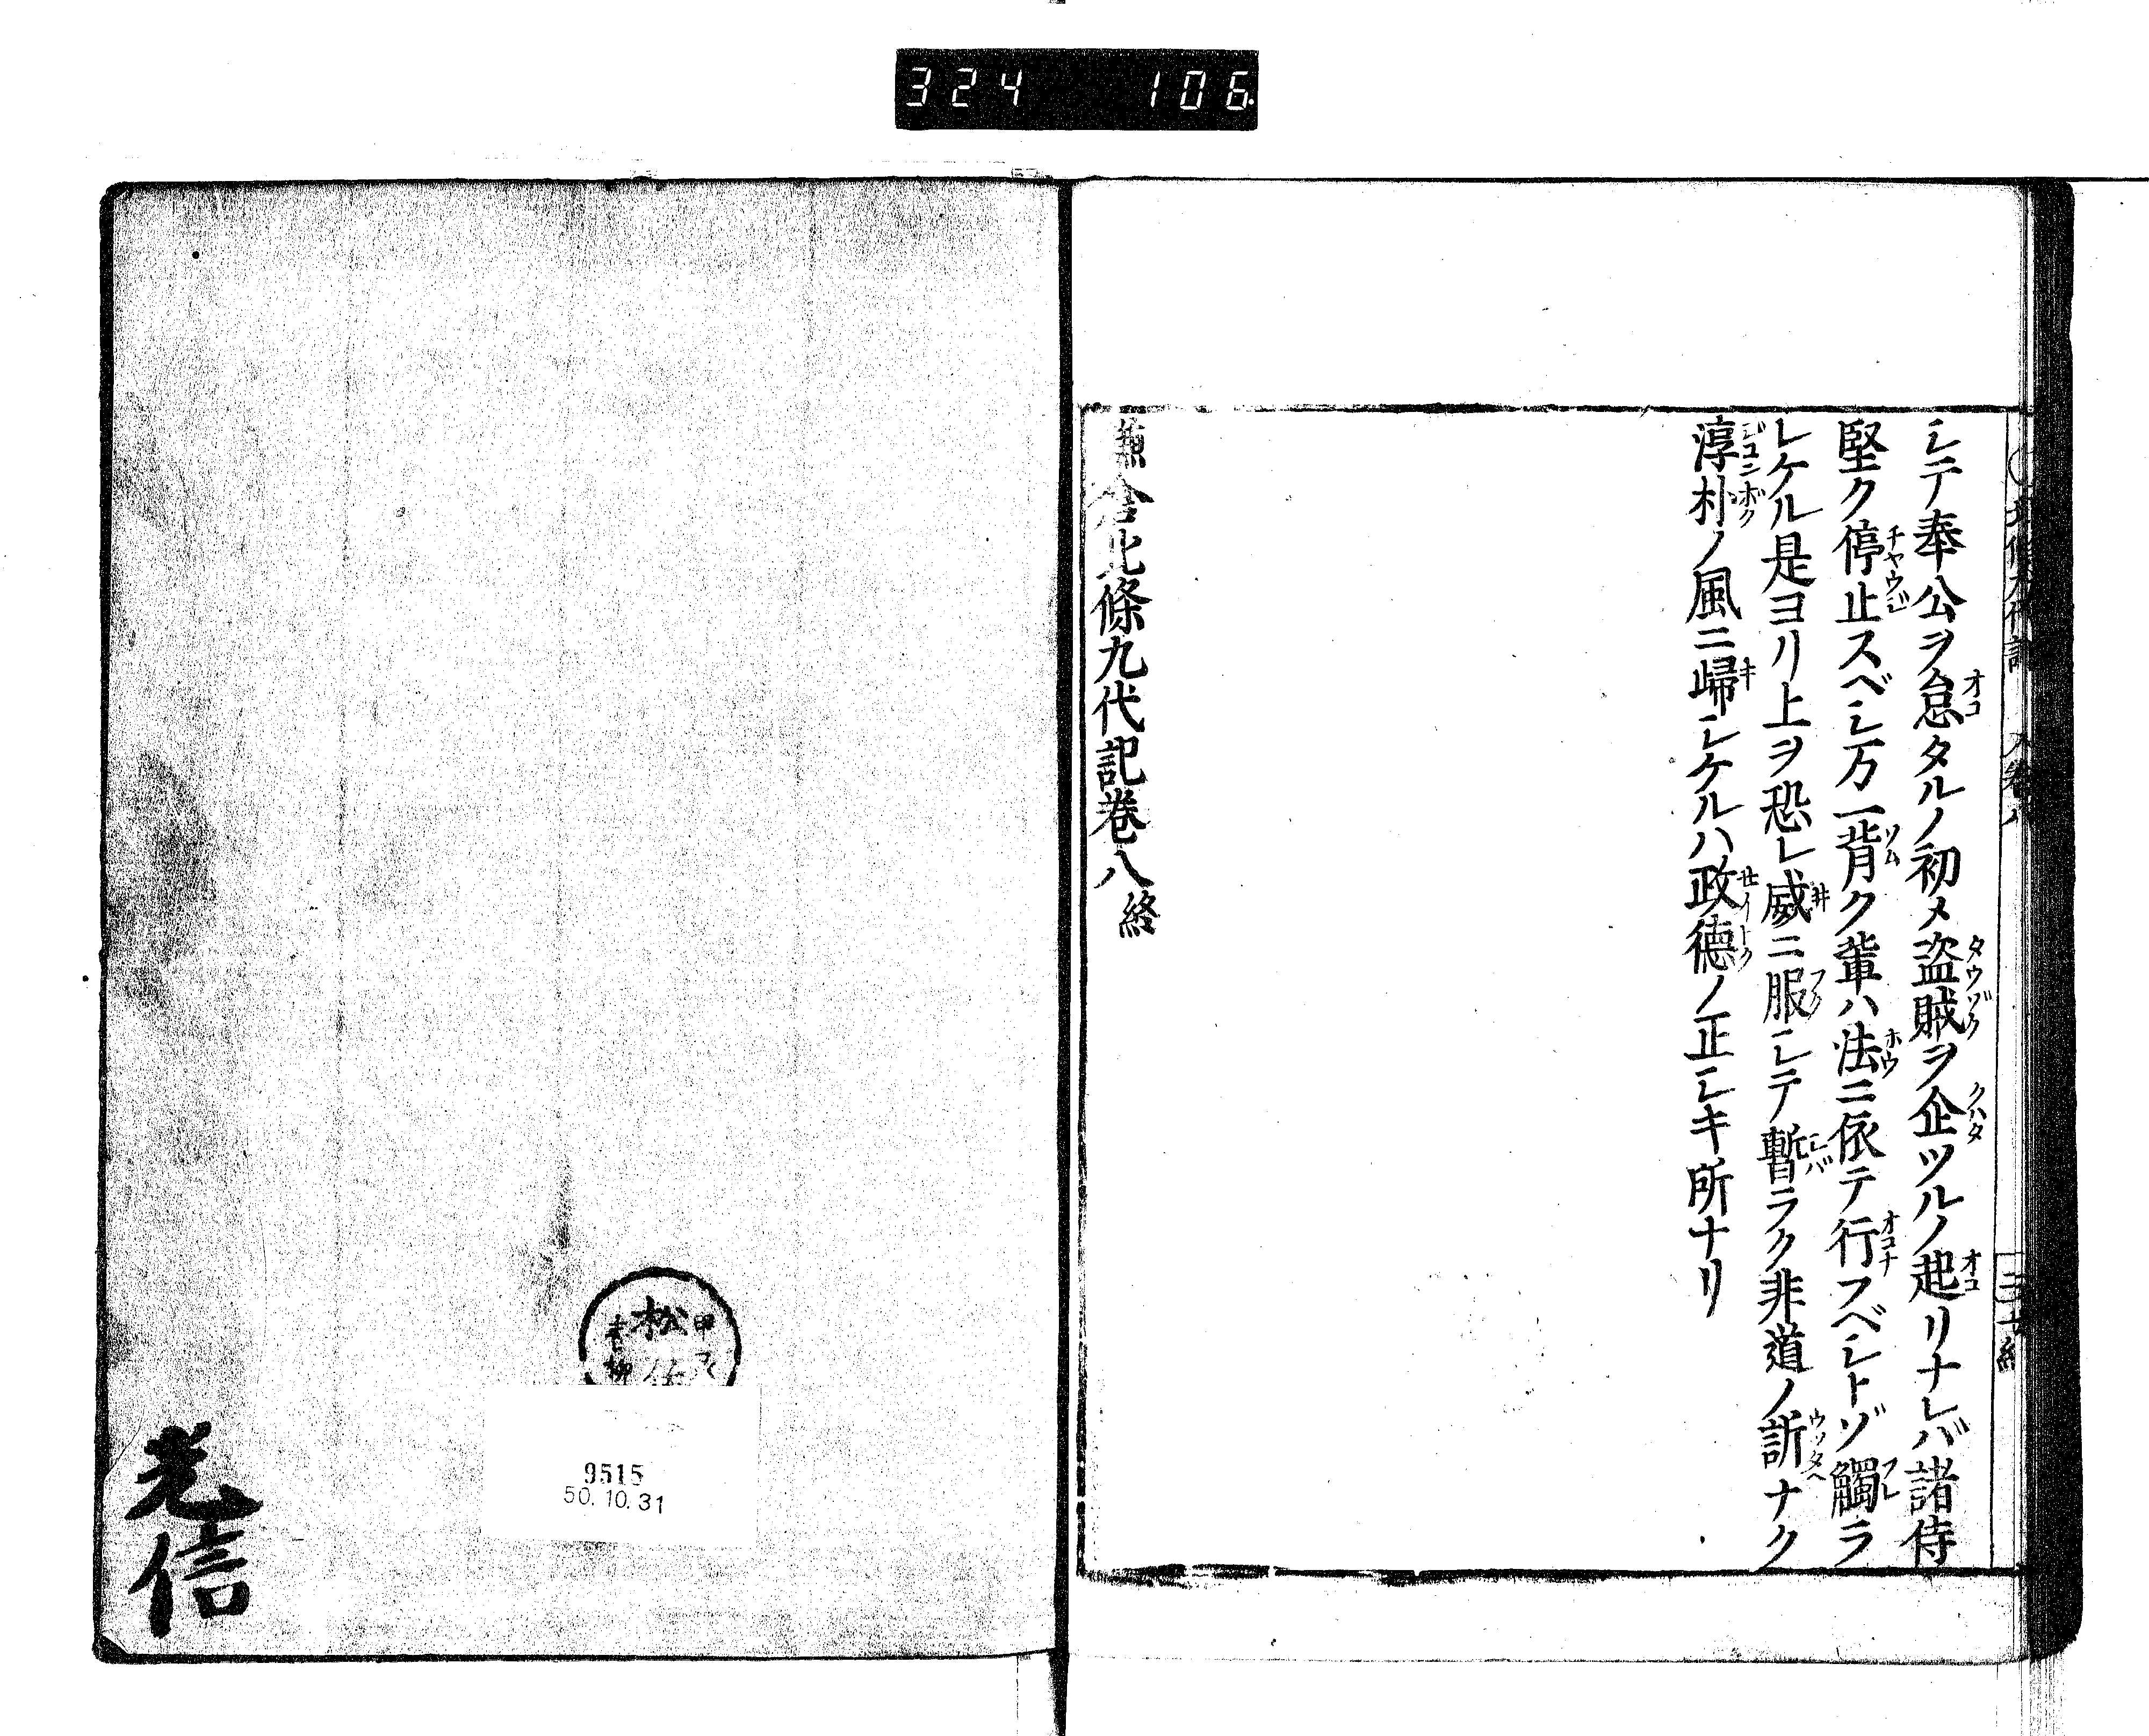 324 106
シテ奉公ヲ怠タルノ初メ盗賊ヲ企ツルノ起リナレバ諸侍
堅ク停止スベシ万一背ク輩ハ法ニ依テ行フベシトゾ觸ラ
レケル是ヨリ上ヲ恐レ威ニ服シテ暫ラク非道ノ訴ナク
淳朴ノ風ニ歸シケルハ政德ノ正シキ所ナリ
倉北條九代記巻八終
松
9515
50.10.31
光信